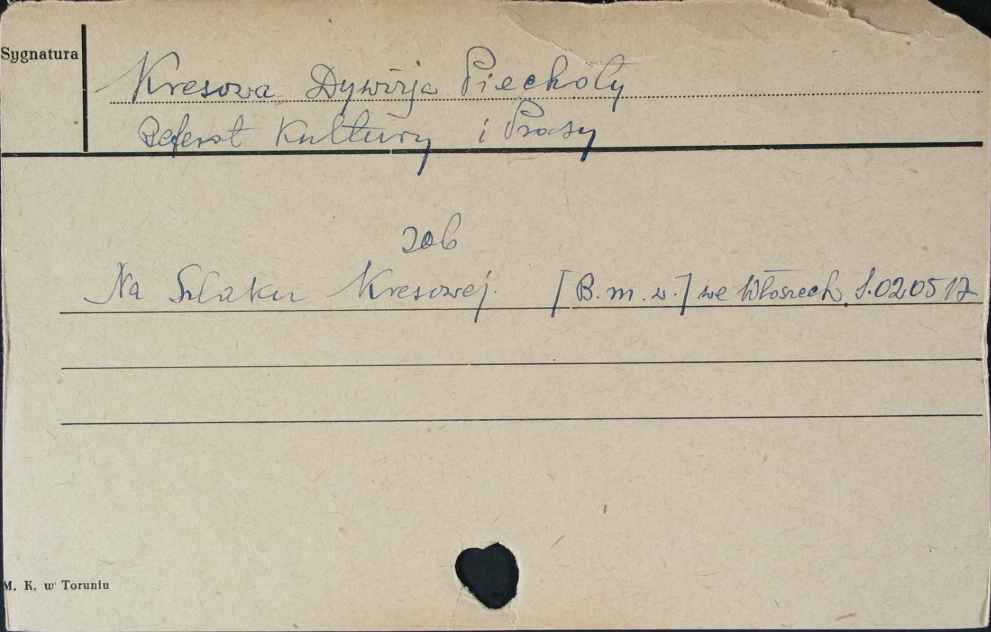 Sygnatura
Kresowa Dywizja Piechoty
Referat Kultury i Prasy
zob
Na Szlaku Kresowej. [B.m.w.] we Włoszech. S.020517
M. K. w Toruniu